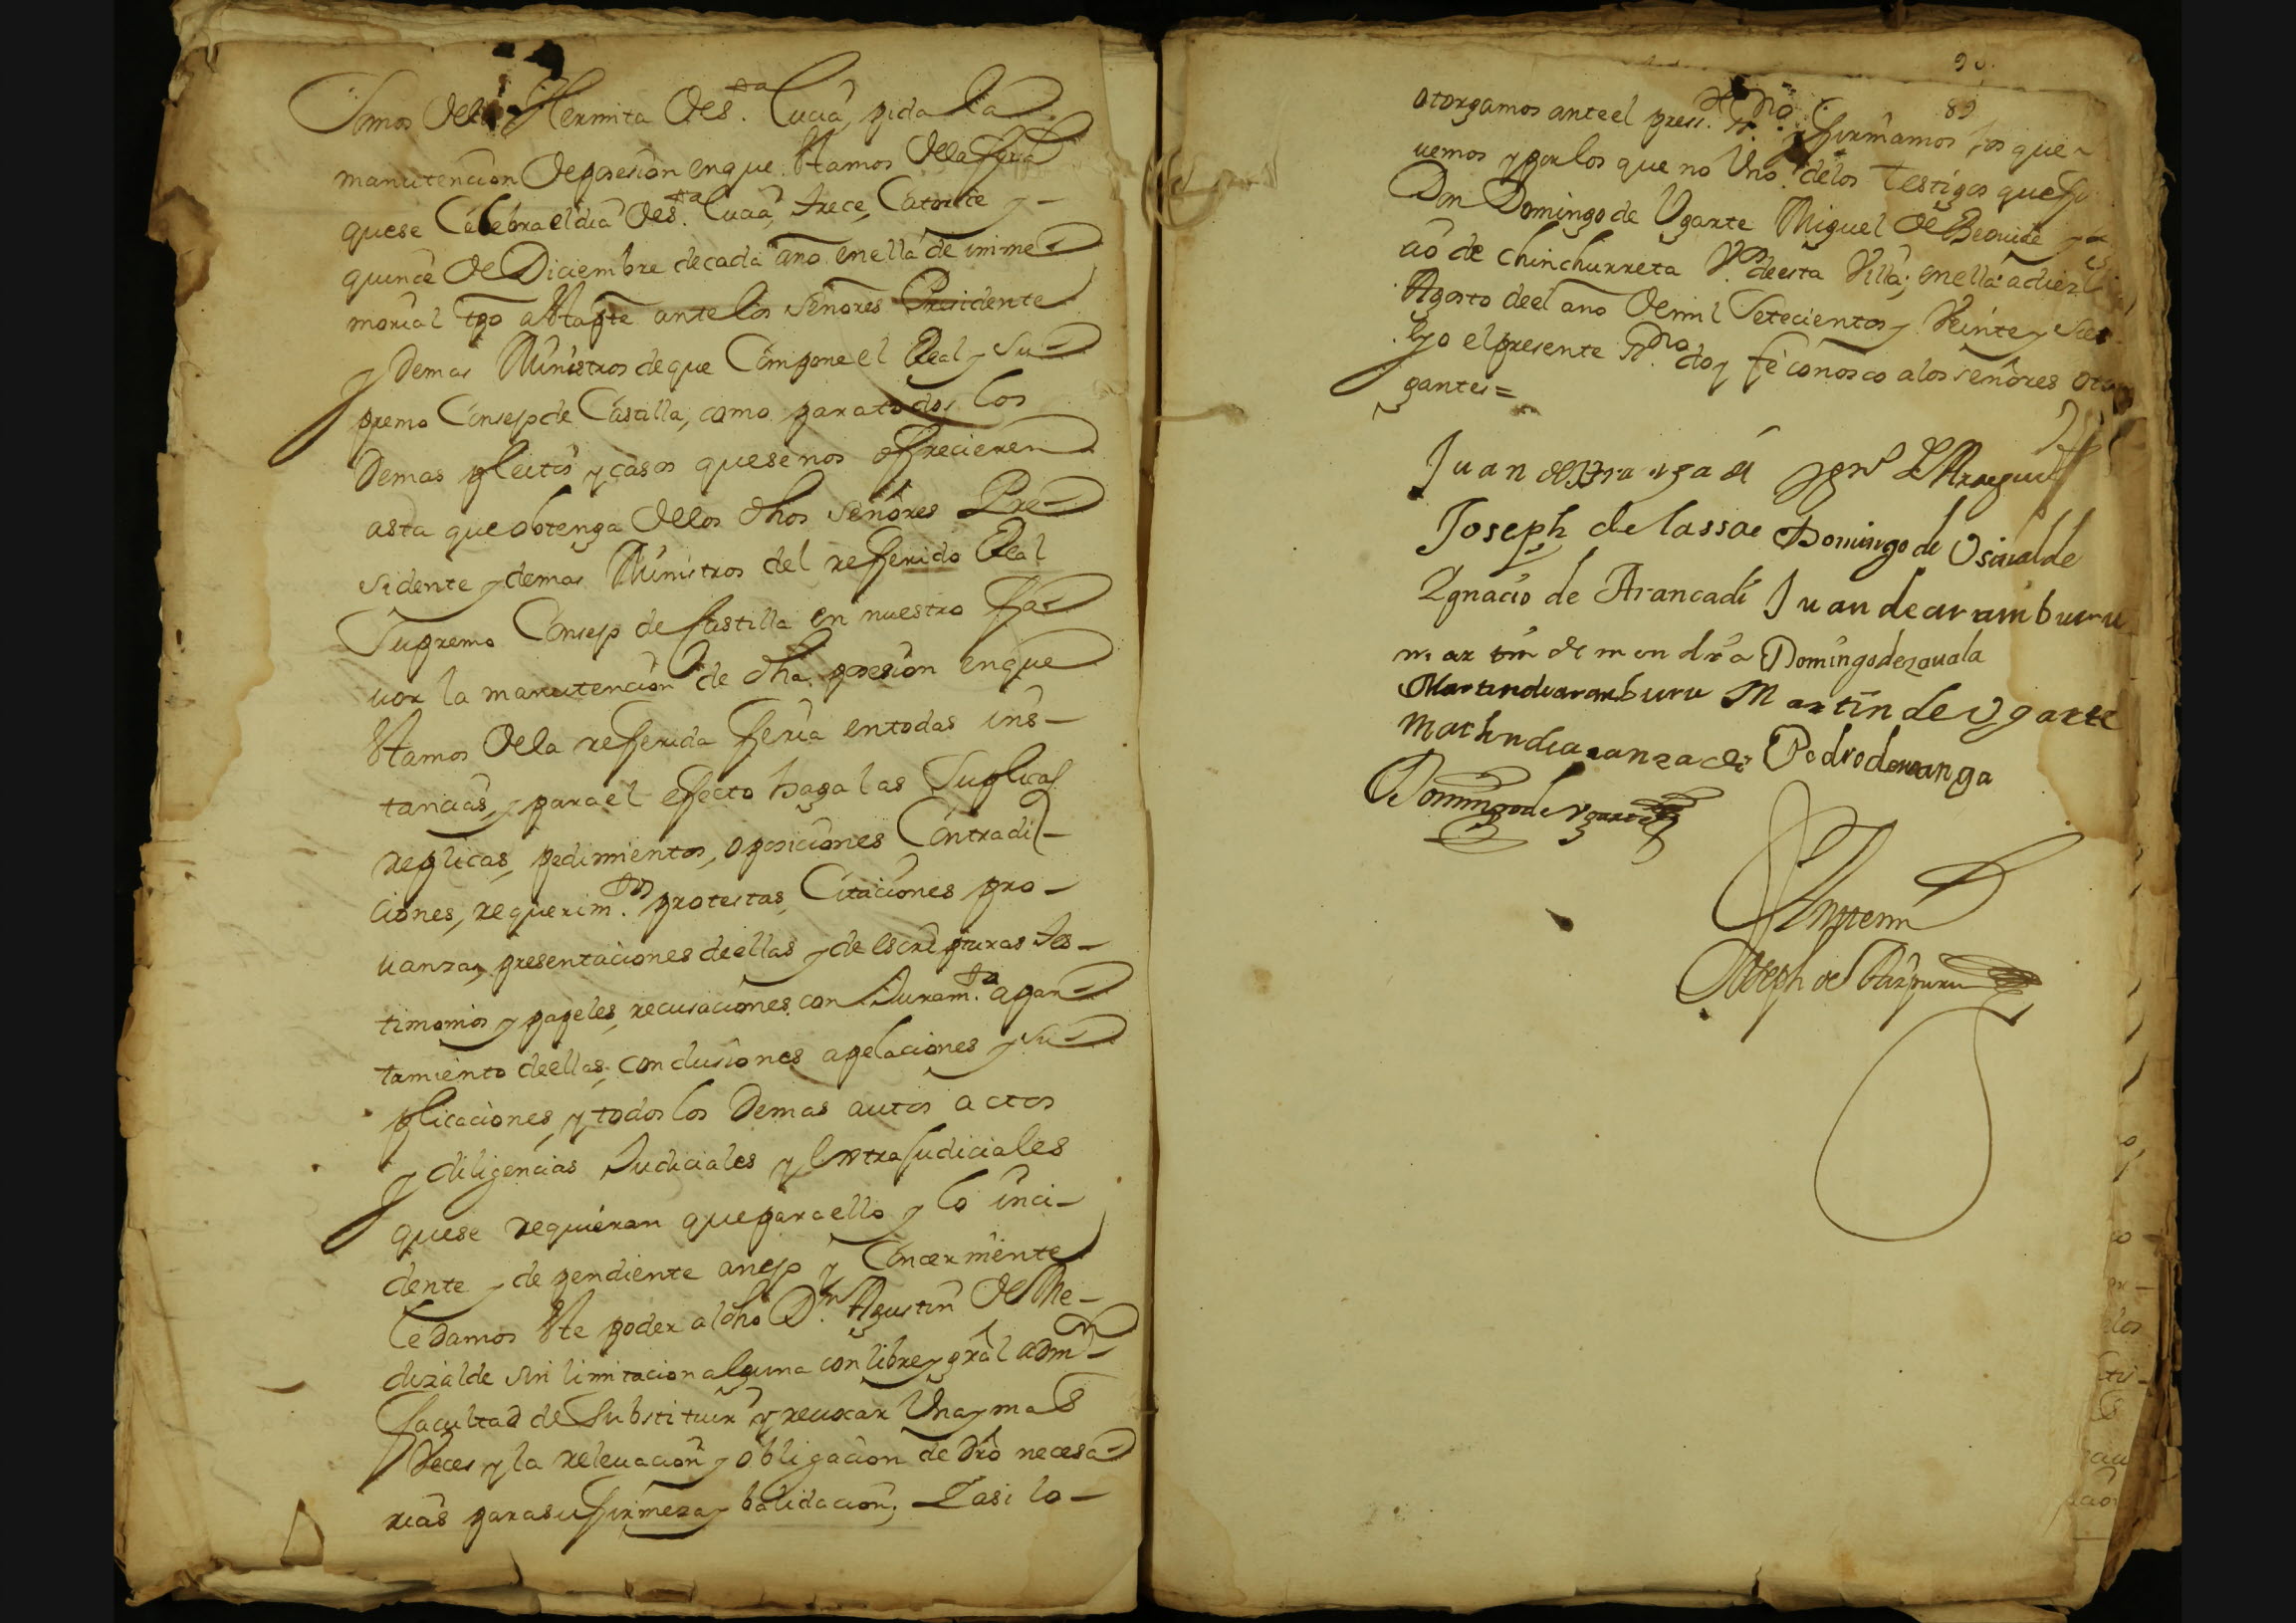 Hermita de s.ta Lucia, pida la
manutencion de posesion en que estamos de la feria
que se Celebra el dia de s.ta Lucia, trece, Catorce y
quince de Diciembre de cada año en ella de inme
morial tpo a esta pte ante los señores Presidente
y Demas Ministros de que Compone el Real y Su
premo Consejo de Castilla, como para todos los
Demas pleitos y casos que se nos ofrecieren
asta que obtenga de los dhos señores Pre
sidente y demas Ministros del referido Real
Supremo Consejo de Castilla en nuestro fa
vor la manutencion de dha posesion en que
estamos de la referida feria en todas ins
tancias, y para el efecto haga las Suplicas
replicas, pedimientos, oposiciones Contradi
ciones, requerim.tos protestas, Citaciones pro
uanzas, presentaciones de ellas y de escripturas tes
timonios y papeles, recusaciones con Juram.to apar
tamiento de ellas, conclusiones apelaciones y su
plicaciones, y todos los Demas autos actos
y diligencias Judiciales y extrajudiciales
que se requieran que para ello y lo inci
dente y dependiente anejo y Concerniente
le damos este poder al dho D.n Agustin de Me
dizalde sin limitacion alguna con libre y gral adm.n
facultad de Substituir y reuocar Una y mas
Veces y la releuacion y obligacion de dro necesa
rias para su firmeza y balidacion; Y asi lo
89
otorgamos ante el press.te ss.no y firmamos los que
uemos y por los que no Uno de los testigos que
Don Domingo de Ugarte Miguel de Beouide y
cio de Chinchurreta V.os de esta Villa; en ella a diez
Agosto de el año de mil Setecientos y Veinte y Siete
Eyo el presente ss.no doy fe conosco a los señores otor
gantes=
Juan
Joseph de lassae Domingo de Osinalde
Ygnacio de Arancadi Juan de arramburu
martin de mendia Domingo de zauala
Martin de aramburu Martin de Ugarte
Pedro de
Domingo de Ugarte
Antemi
Joseph de